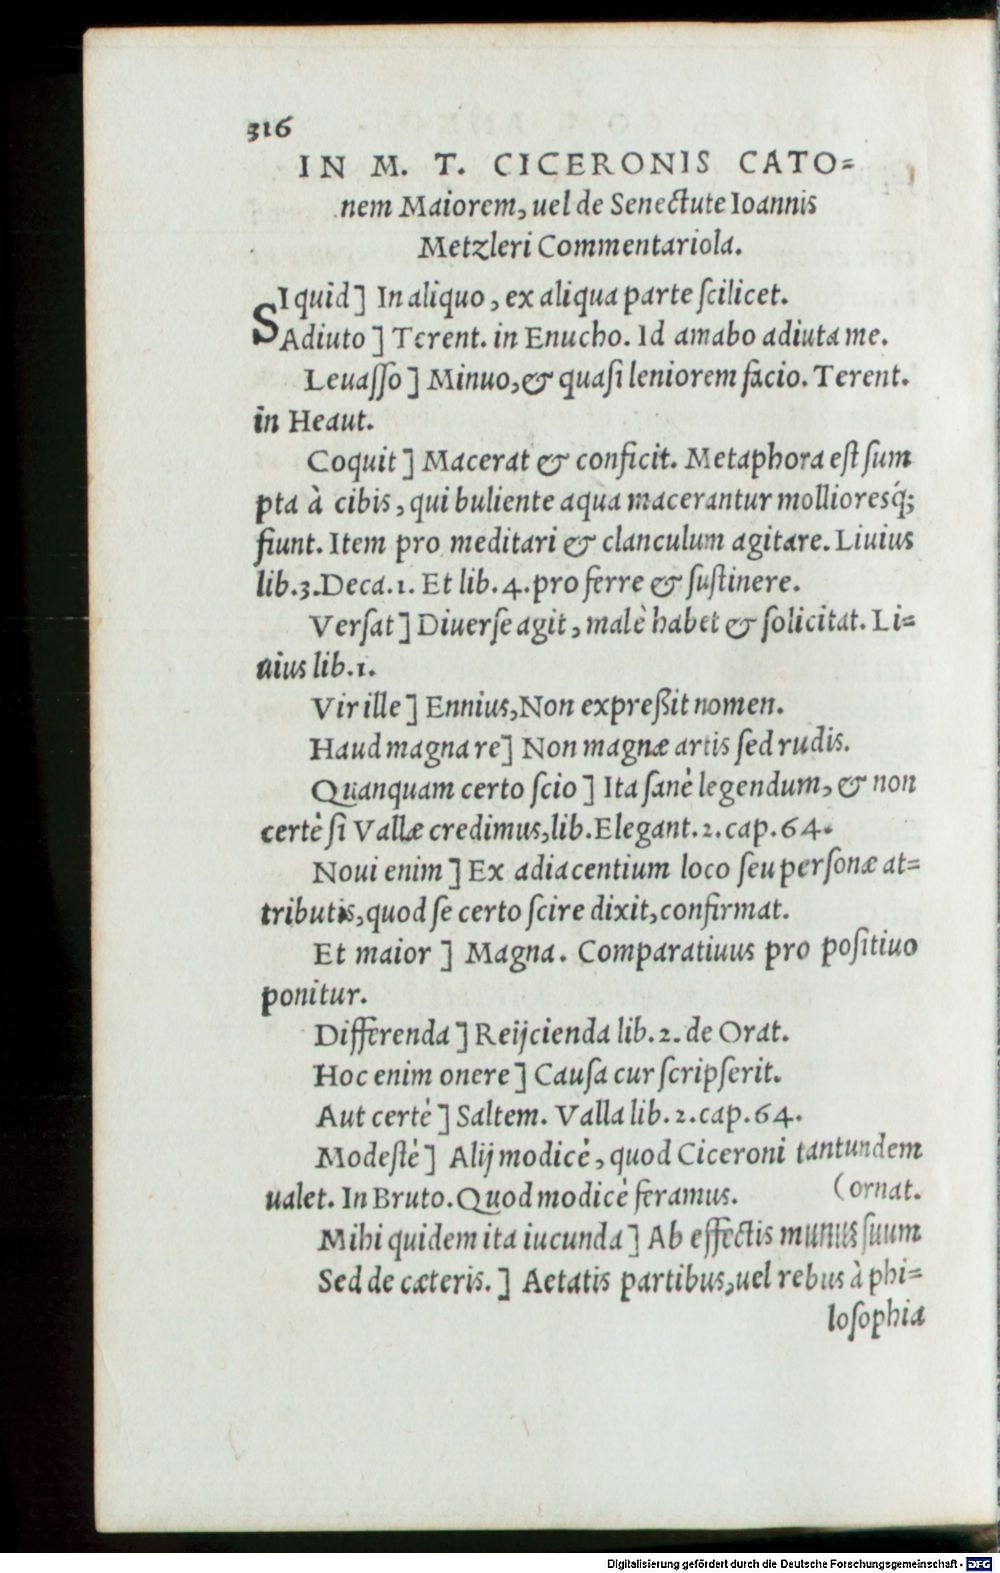 316
IN M. T. CICERONIS CATO=
nem Maiorem, uel de Senectute Ioannis
Metzleri Commentariola.
SI quid] In aliquo, ex aliqua parte ſcilicet.
Adiuto] Terent. in Enucho. Id amabo adiuta me.
Leuaſſo] Minuo, & quaſi leniorem facio. Terent.
in Heaut.
Coquit] Macerat & conficit. Metaphora eſt ſum
pta à cibis, qui buliente aqua macerantur mollioresq́;
fiunt. Item pro meditari & clanculum agitare. Liuius
lib.3.Deca.1. Et lib.4.pro ferre & ſuſtinere.
Verſat] Diuerſe agit, malè habet & ſolicitat. Li=
uius lib.1.
Vir ille] Ennius, Non expreßit nomen.
Haud magna re] Non magnæ artis ſed rudis.
Quanquam certo ſcio] Ita ſanè legendum, & non
certè ſi Vallæ credimus, lib. Elegant.2.cap.64.
Noui enim] Ex adiacentium loco ſeu perſonæ at=
tributis, quod ſe certo ſcire dixit, confirmat.
Et maior] Magna. Comparatiuus pro poſitiuo
ponitur.
Differenda] Reijcienda lib.2. de Orat.
Hoc enim onere] Cauſa cur ſcripſerit.
Aut certè] Saltem. Valla lib.2.cap.64.
Modeſtè] Alij modicè, quod Ciceroni tantundem
ualet. In Bruto. Quod modicè feramus. (ornat.
Mihi quidem ita iucunda] Ab effectis munus ſuum
Sed de cæteris.] Aetatis partibus, uel rebus à phi=
loſophia
Digitalisierung gefördert durch die Deutsche Forschungsgemeinschaft - DFG